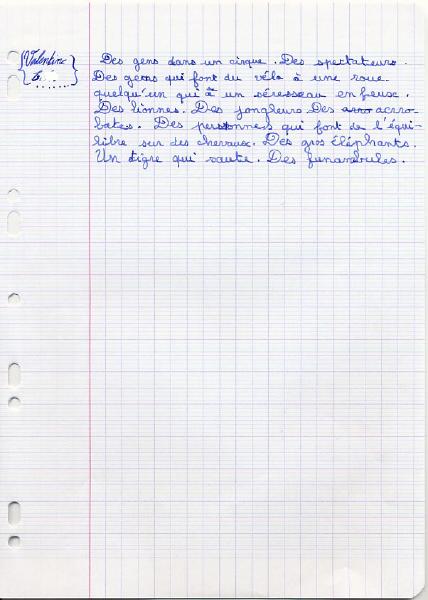 Valentine
Des gens dans un cirque. Des spectateurs.
Des gens qui font du vélo à une roue.
quelqu'un qui à un séresseau en feuse.
Des lionnes. Des jongleurs Des acrro-
bates. Des personnes qui font de l'équi-
libre sur des chevaux. Des gros Éléphants.
Un tigre qui saute. Des funambules.